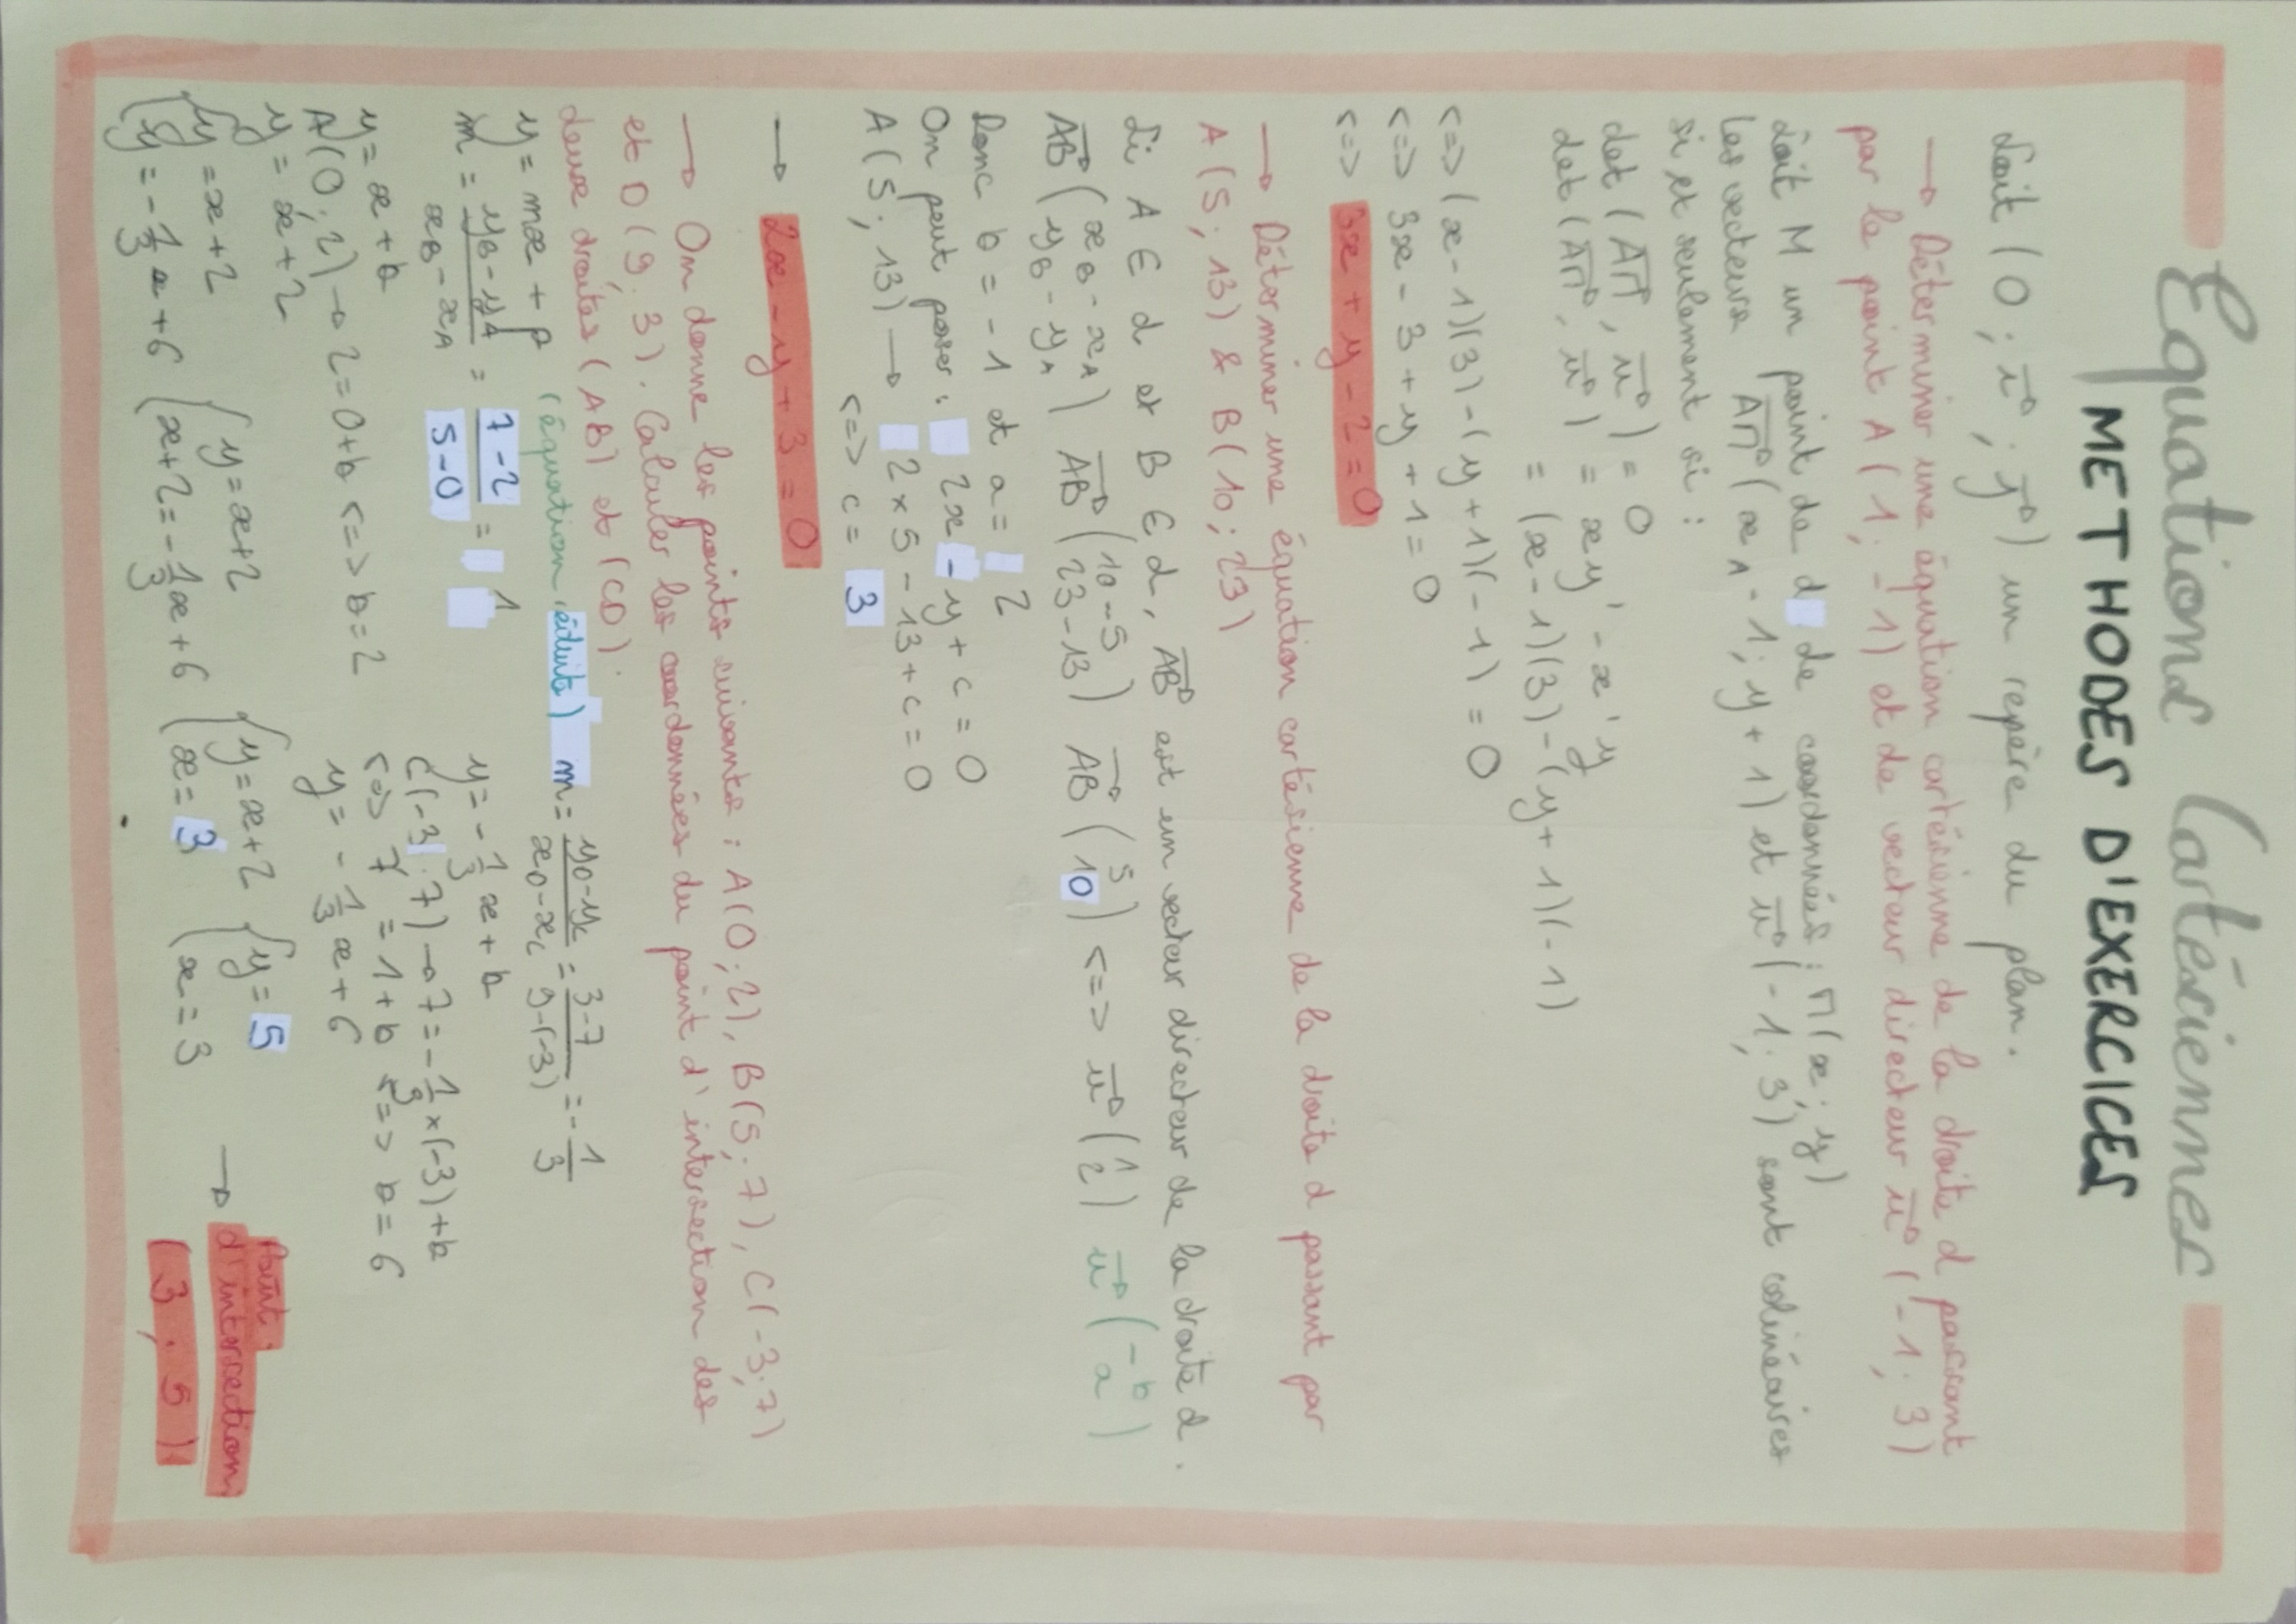 Equations Cartésiennes
METHODES D'EXERCICES
Soit (O ; i→ ; j→) un repère du plan.
→ Déterminer une équation cartésienne de la droite d passant
par le point A (1 ; -1) et de vecteur directeur u→ (-1 ; 3)
Soit M un point de d de coordonnées : M (x ; y)
Les vecteurs AM→ (x_A - 1 ; y + 1) et u→ (-1 ; 3) sont colinéaires
si et seulement si :
det (AM→, u→) = 0
det (AM→, u→) = xy' - x'y
= (x - 1)(3) - (y + 1)(-1)
<=> (x - 1)(3) - (y + 1)(-1) = 0
<=> 3x - 3 + y + 1 = 0
<=> 3x + y - 2 = 0
→ Déterminer une équation cartésienne de la droite d passant par
A (5 ; 13) & B (10 ; 23)
Si A ∈ d et B ∈ d, AB→ est un vecteur directeur de la droite d.
AB→ (x_B - x_A / y_B - y_A) AB→ (10 - 5 / 23 - 13) AB→ (5 / 10) <=> u→ (1 / 2) u→ (-b / a)
Donc b = -1 et a = 2
On peut poser : 2x - y + c = 0
A (5 ; 13) → 2 x 5 - 13 + c = 0
<=> c = 3
→ 2x - y + 3 = 0
→ On donne les points suivants : A (0 ; 2), B (5 ; 7), C (-3 ; 7)
et D (9 ; 3). Calculer les coordonnées du point d'intersection des
deux droites (AB) et (CD).
y = mx + p (équation réduite) m = (y_D - y_C)/(x_D - x_C) = (3 - 7)/(9 - (-3)) = -1/3
m = (y_B - y_A)/(x_B - x_A) = (7 - 2)/(5 - 0) = 1
y = x + b
A (0 ; 2) → 2 = 0 + b <=> b = 2
y = x + 2
y = -1/3 x + b
C (-3 ; 7) → 7 = -1/3 x (-3) + b
<=> 7 = 1 + b <=> b = 6
y = -1/3 x + 6
{ y = x + 2 { y = x + 2 { y = x + 2 { y = 5
{ y = -1/3 x + 6 { x + 2 = -1/3 x + 6 { x = 3 { x = 3
→ Point
d'intersection
(3 ; 5)